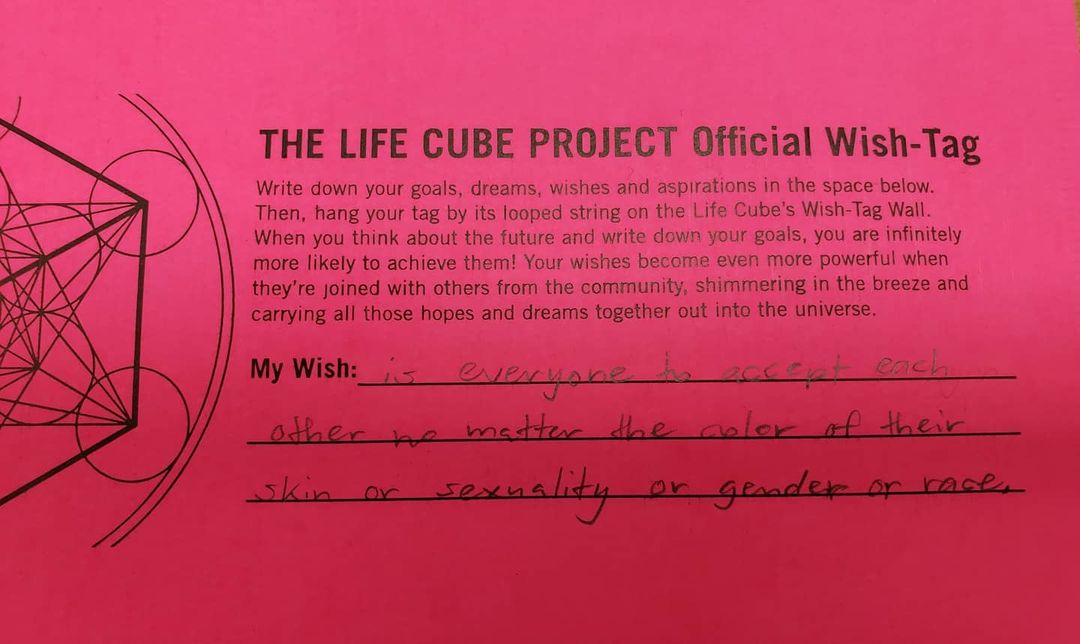 THE LIFE CUBE PROJECT Official Wish-Tag
Write down your goals, dreams, wishes and aspirations in the space below.
Then, hang your tag by its looped string on the Life Cube's Wish-Tag Wall.
When you think about the future and write down your goals, you are infinitely
more likely to achieve them! Your wishes become even more powerful when
they're joined with others from the community, shimmering in the breeze and
carrying all those hopes and dreams together out into the universe.
My Wish: is everyone to accept each
other no matter the color of their
skin or sexuality or gender or race.